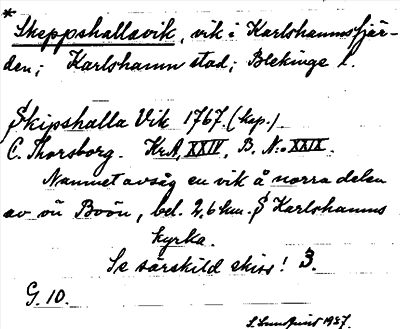 *
Skeppshallavik, vik i Karlshamnsfjär-
den; Karlshamn stad; Blekinge l.
Skipshalla Vik 1767. (kop.)
C. Thorsborg. Kr.A. XXIV, B. N:o XXIX.
Namnet avsåg en vik å norra delen
av ön Boön, bel. 2,6 km. S Karlshamns
kyrka.
Se särskild skiss! 3.
G. 10.
S. Lundqvist 1937.